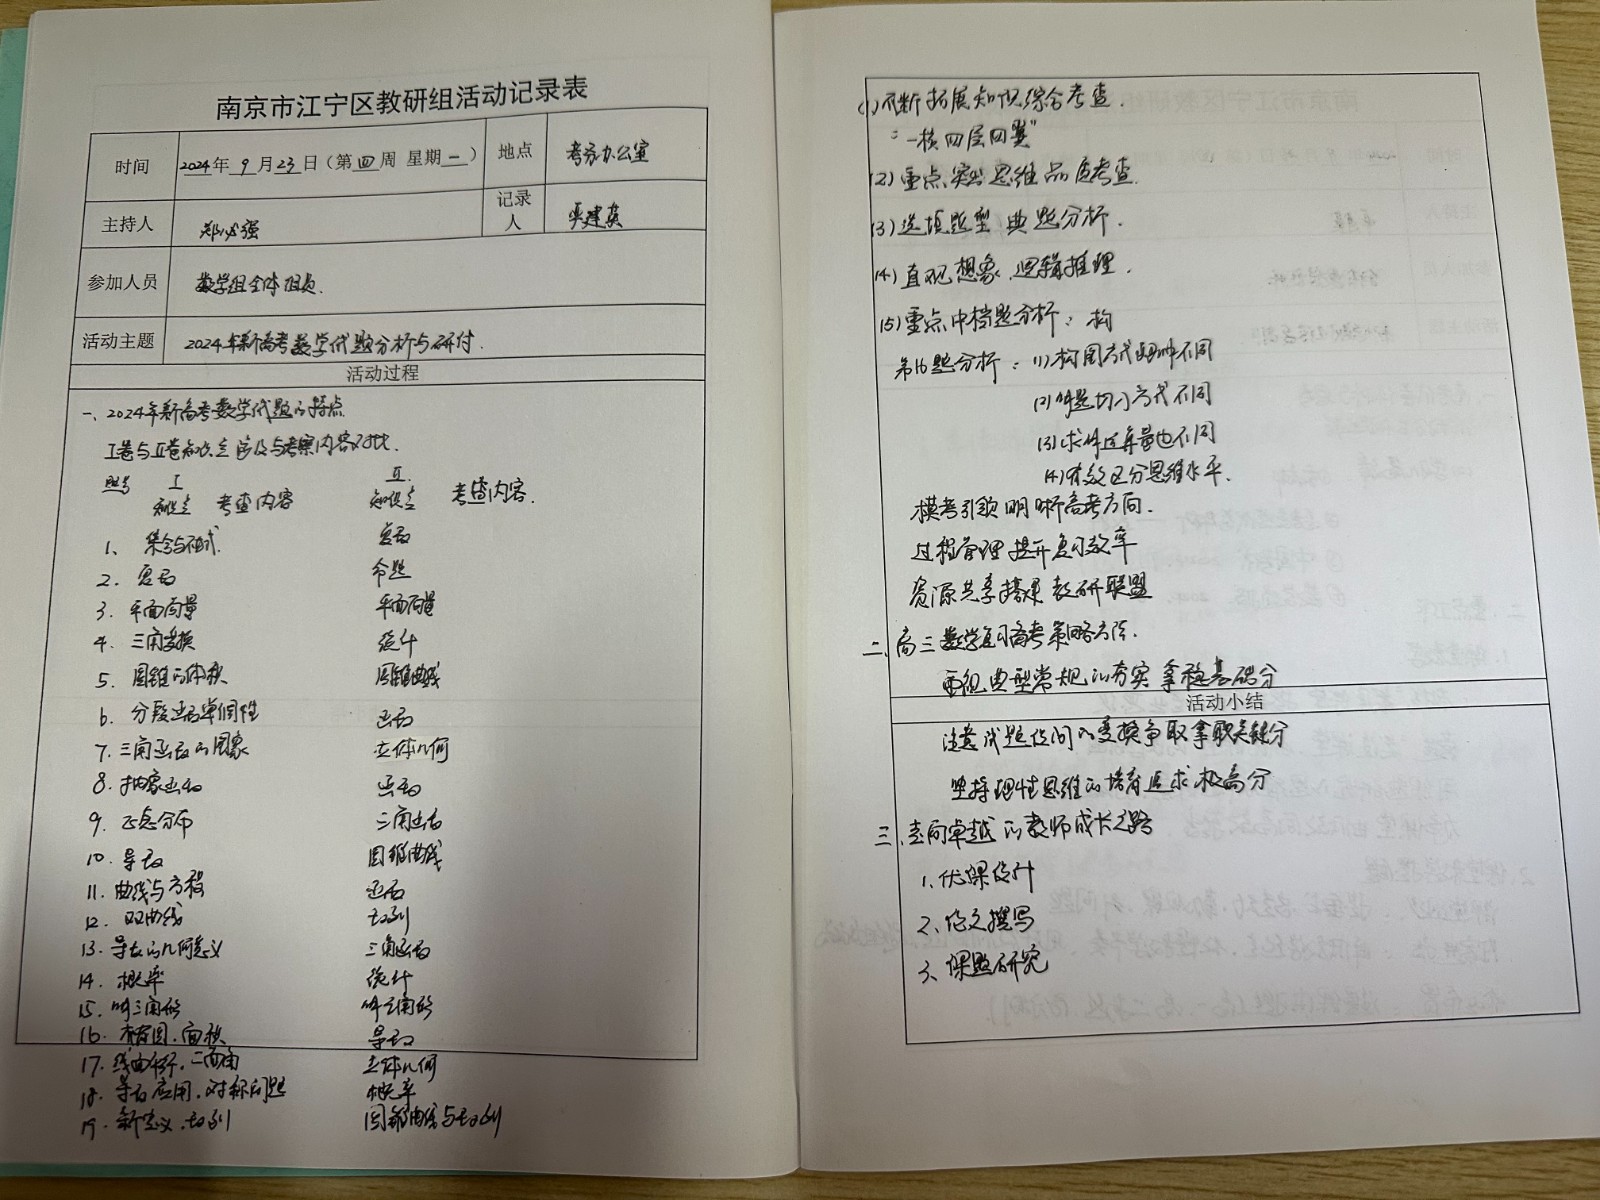 南京市江宁区教研组活动记录表
时间 2024年9月23日（第四周 星期一） 地点 考务办公室
主持人 郑 强 记录人 建英
参加人员 数学组全体组员.
活动主题 2024年新高考数学试题分析与研讨.
活动过程
一、2024年新高考数学试题的特点
I卷与II卷知识点 及与考察内容对比.
题号 I II.
知识点 考查内容 知识点 考查内容.
1、集合与不等式. 复数
2. 复数 命题
3. 平面向量 平面向量
4. 三角变换 统计
5. 圆锥的体积 圆锥曲线
6. 分段函数单调性 函数
7. 三角函数的图象 立体几何
8. 抽象函数 函数
9. 正态分布 三角函数
10. 导数 圆锥曲线
11. 曲线与方程 函数
12. 双曲线 数列
13. 导数的几何意义 三角函数
14. 概率 统计
15. 解三角形 解三角形
16. 椭圆.面积 导数
17. 线面平行.二面角 立体几何
18. 导数应用.对称问题 概率
19. 新定义.数列 圆锥曲线与数列
(1)不断拓展知识综合考查.
"一核四层四翼"
(2)重点突出思维品质考查.
(3)选填题型 典题分析.
(4)直观想象.逻辑推理.
(5)重点中档题分析：构
第16题分析：(1)构图方式 不同
(2)解题切入方式不同
(3)求解运算量也不同
(4)有效区分思维水平.
模考引领 明晰高考方向.
过程管理 提升复习效率
资源共享 搭建教研联盟
二、高三数学复习备考策略方法.
重视典型常规的夯实 拿稳基础分
活动小结
注意试题设问的变换争取拿取关键分
坚持理性思维的培育追求极高分
三、走向卓越的教师成长之路
1、优课设计
2、论文撰写
3、课题研究